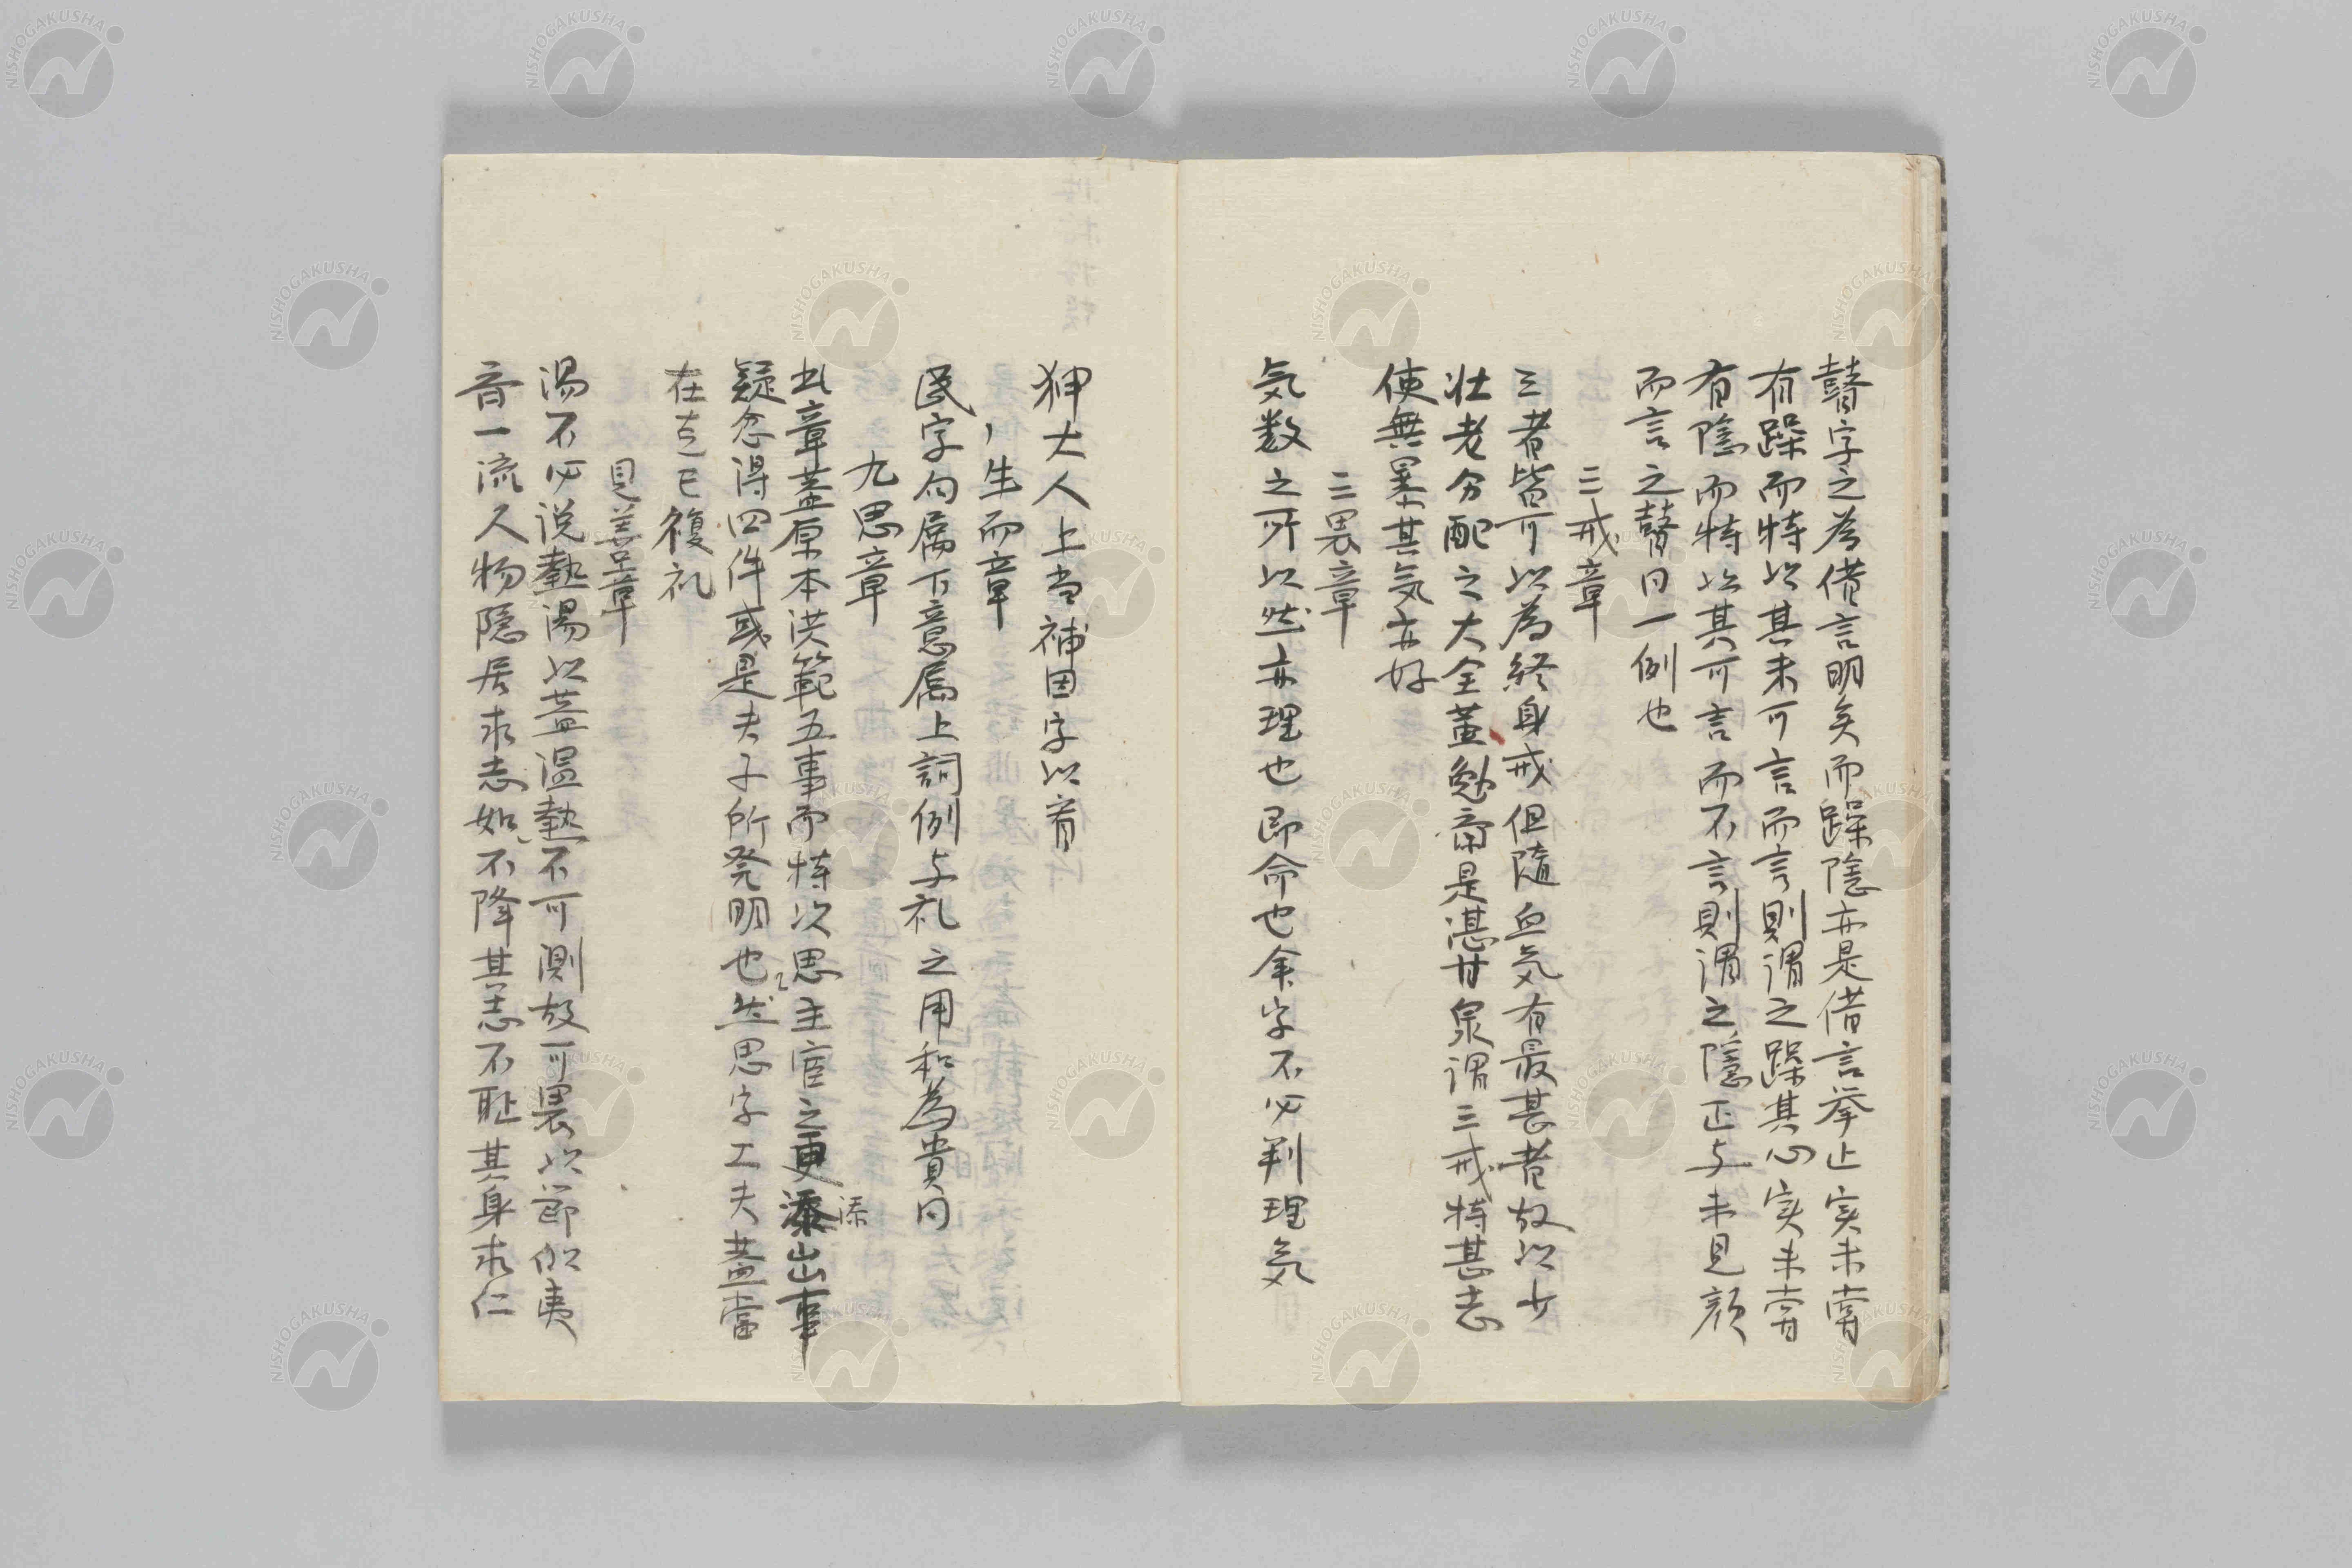 瞽字之為借言明矣而躁隠亦是借言挙止実未嘗
有躁而特以其未可言而言則謂之躁其心実未嘗
有隠而特以其可言而不言則謂之隠正与未見顔
而言之瞽同一例也
三戒章
三者皆可以為終身戒但隨血気有最甚者故以少
壮老分配之大全黄勉斎是湛甘泉謂三戒特其志
使無暴其気亦好
三畏章
気数之所以然亦理也即命也余字不必判理気
狎大人上当補因字以有
生而章
民字句属下意属上詞例与礼之用和為貴同
九思章
此章蓋原本洪範五事而特次思主宦之更添出事
添
疑念得四件或是夫子所発明也然思字工夫蓋當
在克已複礼
見善章
湯不必説熱湯以蓋温熱不可測故可畏以節伯夷
音一流人物隠居求志如不降其志不耻其身求仁